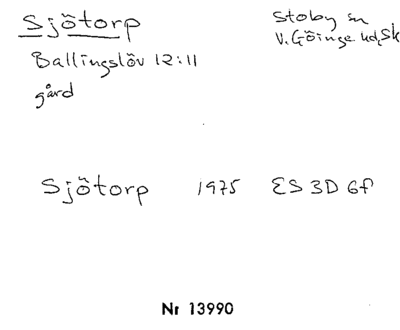 Sjötorp
Stoby sn
V. Göinge hd, Sk
Ballingslöv 12:11
gård
Sjötorp 1975 ES 3D 6f
Nr 13990